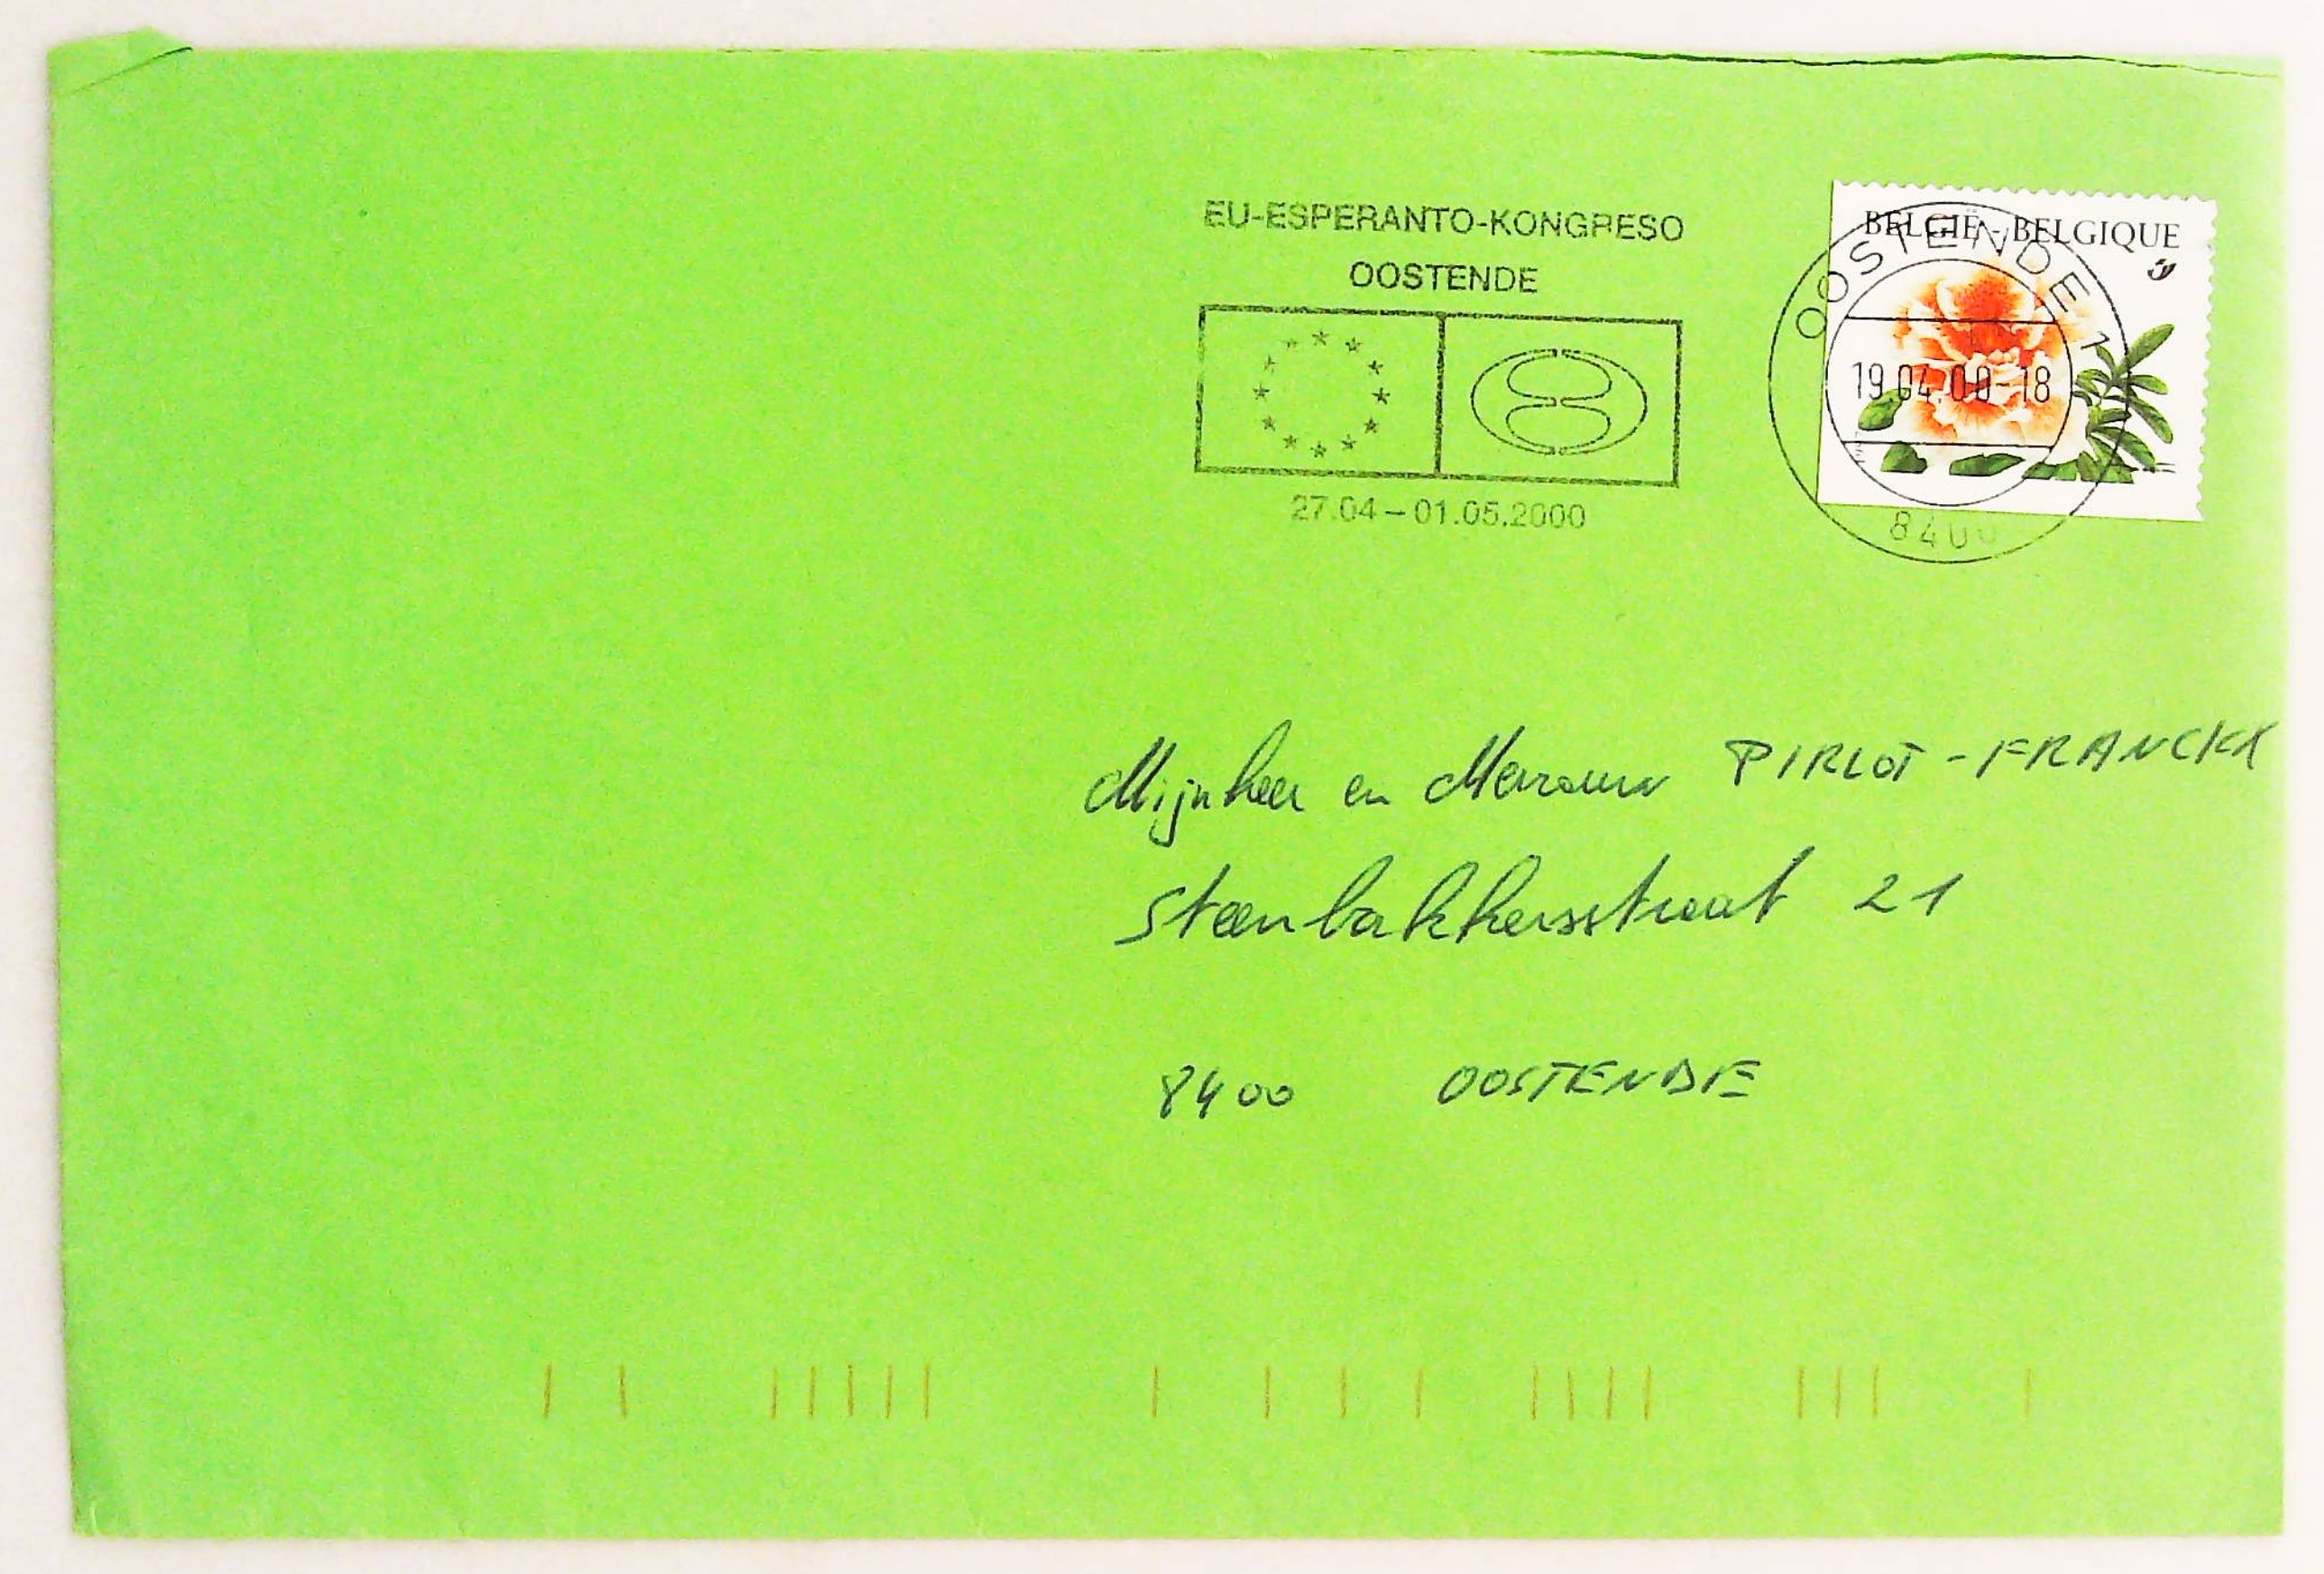 EU-ESPERANTO-KONGRESO
OOSTENDE
27.04 – 01.05.2000
BELGIË - BELGIQUE
OOSTENDE 1
19.04.00-18
8400
Mijnheer en Mevrouw PIRLOT - FRANCKX
Steenbakkersstraat 21
8400 OOSTENDE